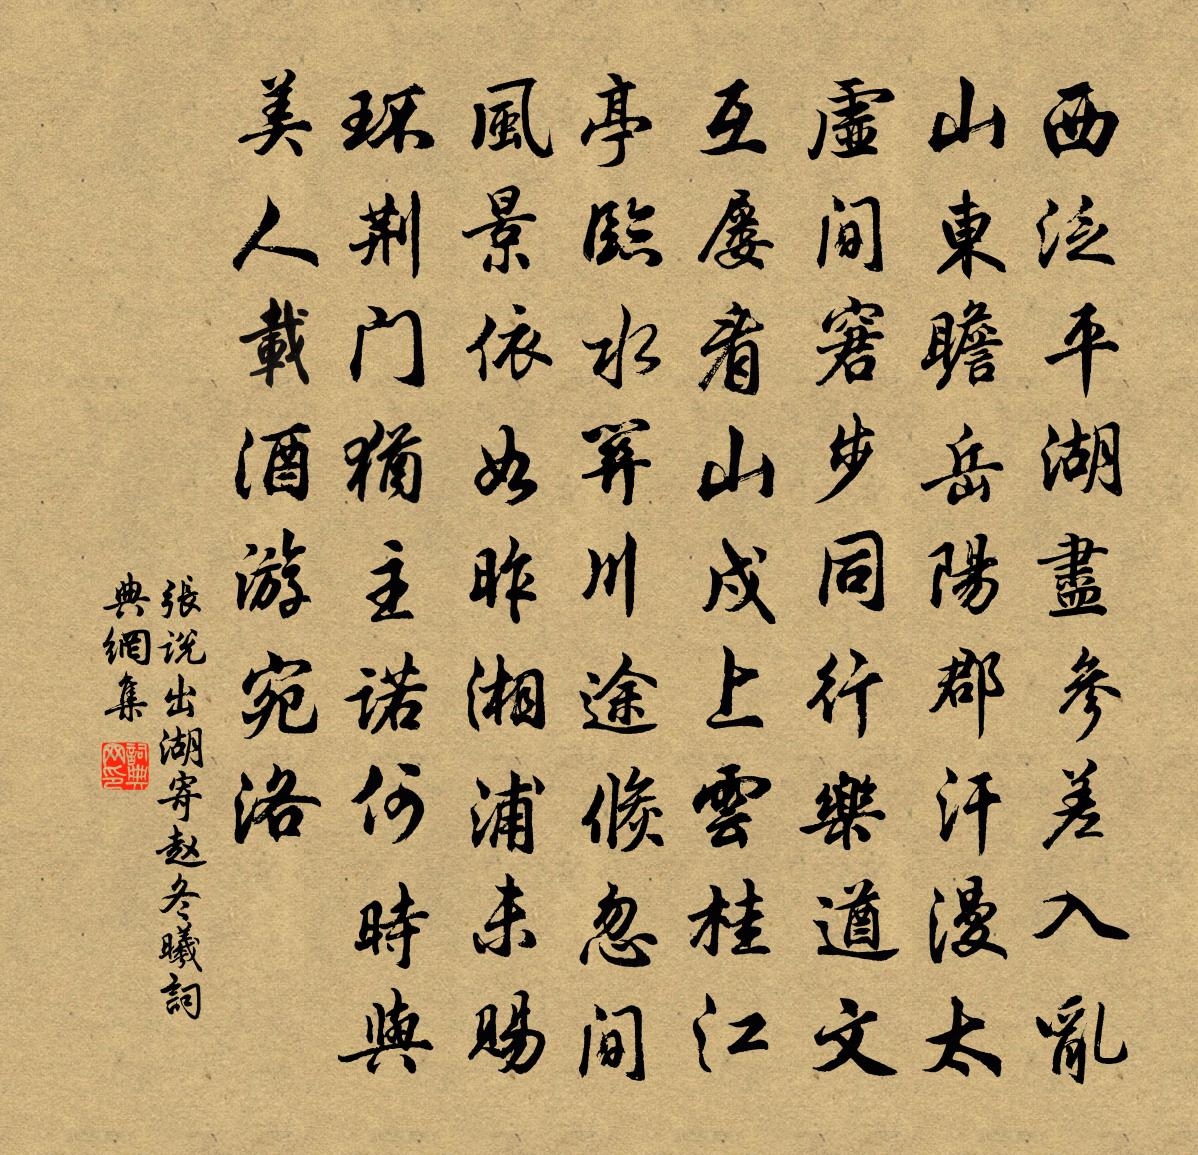 西泛平湖盡參差入亂
山東瞻岳陽郡汗漫太
虛間窘步同行樂遒文
互屢看山戍上雲桂江
亭臨水關川途倏忽間
風景依如昨湘浦未賜
環荊門猶主諾何時與
美人載酒游宛洛
張說出湖寄趙冬曦詞
典網集
詞典网印